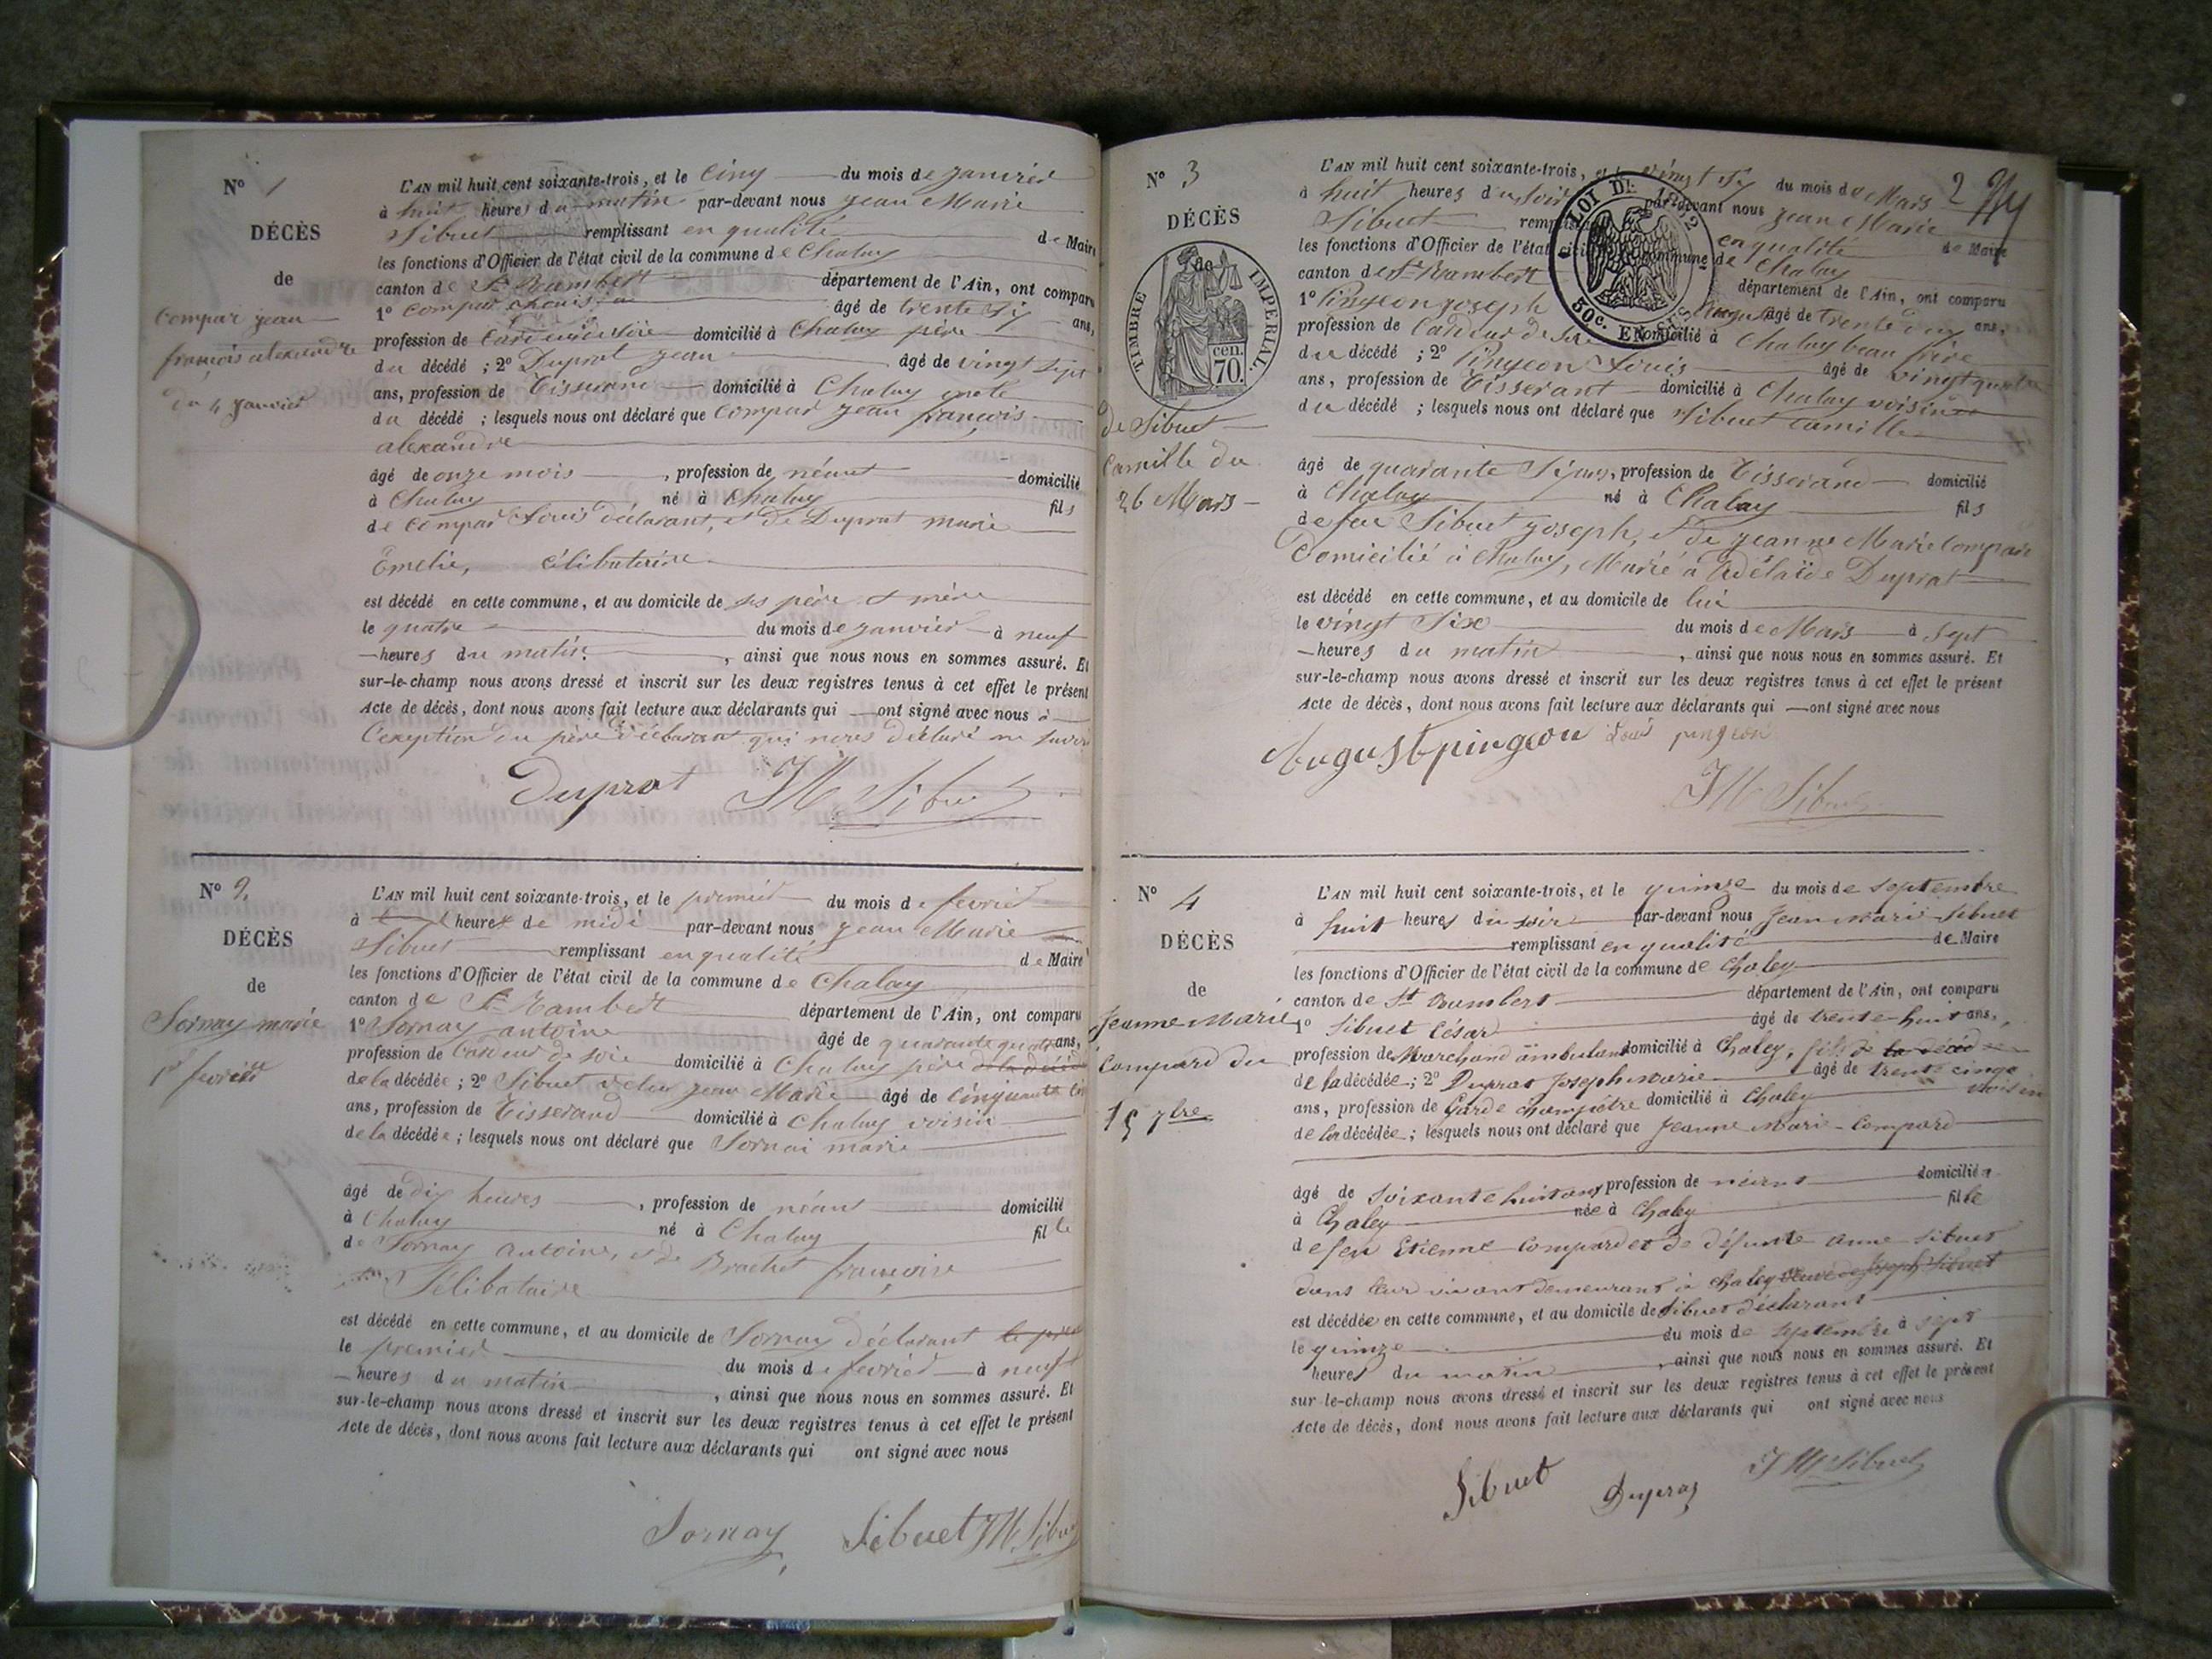 N° 1
DÉCÈS
de
Compar jean
françois alexandre
du 4 janvier
L'AN mil huit cent soixante-trois, et le cinq du mois de janvier
à huit heures du matin par-devant nous jean Marie
Sibuet remplissant en qualité de Maire
les fonctions d'Officier de l'état civil de la commune de Chaley
canton de St Rambert département de l'Ain, ont comparu
1° Compar Louis âgé de trente six ans,
profession de Cardeur de soie domicilié à Chaley père
du décédé ; 2° Duprat jean âgé de vingt sept
ans, profession de Tisserand domicilié à Chaley oncle
du décédé ; lesquels nous ont déclaré que Compar jean françois
alexandre
âgé de onze mois , profession de néant domicilié
à Chaley né à Chaley fils
de Compar Louis déclarant, et de Duprat marie
Emelie, célibataire
est décédé en cette commune, et au domicile de ses père et mère
le quatre du mois de janvier à neuf
heures du matin , ainsi que nous nous en sommes assuré. Et
sur-le-champ nous avons dressé et inscrit sur les deux registres tenus à cet effet le présent
Acte de décès, dont nous avons fait lecture aux déclarants qui ont signé avec nous à
l'exception du père déclarant qui nous déclaré ne savoir
Duprat JM Sibuet
N° 2
DÉCÈS
de
Sornay marie
1er fevrier
L'AN mil huit cent soixante-trois, et le premier du mois de fevrier
à heures de midi par-devant nous jean Marie
Sibuet remplissant en qualité de Maire
les fonctions d'Officier de l'état civil de la commune de Chaley
canton de St Rambert département de l'Ain, ont comparu
1° Sornay antoine âgé de quarante quatre ans,
profession de Cardeur de soie domicilié à Chaley père de la décédée
de la décédée ; 2° Sibuet jean Marie âgé de cinquante
ans, profession de Tisserand domicilié à Chaley voisin
de la décédée ; lesquels nous ont déclaré que Sornai marie
âgé de dix heures , profession de néant domicilié
à Chaley né à Chaley fille
de Sornay antoine, et de Brachet françoise
Célibataire
est décédé en cette commune, et au domicile de Sornay déclarant le père
le premier du mois de fevrier à neuf
heures du matin , ainsi que nous nous en sommes assuré. Et
sur-le-champ nous avons dressé et inscrit sur les deux registres tenus à cet effet le présent
Acte de décès, dont nous avons fait lecture aux déclarants qui ont signé avec nous
Sornay Sibuet JM Sibuet
2
N° 3
DÉCÈS
de
TIMBRE IMPERIAL
70 cen.
de Sibuet
Camille du
26 Mars
LOI DE 2
30c. EN SUS
L'AN mil huit cent soixante-trois, et le vingt six du mois de Mars
à huit heures du soir par-devant nous jean Marie
Sibuet remplissant en qualité de Maire
les fonctions d'Officier de l'état civil de la commune de Chaley
canton de St Rambert département de l'Ain, ont comparu
1° Pingeon joseph auguste âgé de trente deux ans,
profession de Cardeur de soie domicilié à Chaley beau frère
du décédé ; 2° Pingeon Louis âgé de vingt quatre
ans, profession de Tisserant domicilié à Chaley voisin
du décédé ; lesquels nous ont déclaré que Sibuet camille
âgé de quarante six ans, profession de Tisserand domicilié
à Chaley né à Chaley fils
de feu Sibuet joseph, et de jeanne Marie Compare
Domicilié à Chaley, Marié à Adélaïde Duprat
est décédé en cette commune, et au domicile de lui
le vingt Six du mois de Mars à sept
heures du matin , ainsi que nous nous en sommes assuré. Et
sur-le-champ nous avons dressé et inscrit sur les deux registres tenus à cet effet le présent
Acte de décès, dont nous avons fait lecture aux déclarants qui ont signé avec nous
August pingeon Louis pingeon
JM Sibuet
N° 4
DÉCÈS
de
Jeanne Marie
Compard du
15 7bre
L'AN mil huit cent soixante-trois, et le quinze du mois de septembre
à huit heures du soir par-devant nous Jean marie Sibuet
remplissant en qualité de Maire
les fonctions d'Officier de l'état civil de la commune de Chaley
canton de St Rambert département de l'Ain, ont comparu
1° Sibuet César âgé de trente-huit ans,
profession de Marchand ambulant domicilié à Chaley, fils de la décédée
de la décédée ; 2° Dupraz Joseph marie âgé de trente cinq
ans, profession de Garde champêtre domicilié à Chaley voisin
de la décédée ; lesquels nous ont déclaré que Jeanne Marie Compard
âgé de soixante huit ans, profession de néant domiciliée
à Chaley née à Chaley fille
de feu Etienne Compard et de défunte anne Sibuet
dans leur vivant demeurant à Chaley veuve de Joseph Sibuet
est décédée en cette commune, et au domicile de Sibuet déclarant
le quinze du mois de septembre à sept
heures du matin , ainsi que nous nous en sommes assuré. Et
sur-le-champ nous avons dressé et inscrit sur les deux registres tenus à cet effet le présent
Acte de décès, dont nous avons fait lecture aux déclarants qui ont signé avec nous
Sibuet Dupraz JM Sibuet